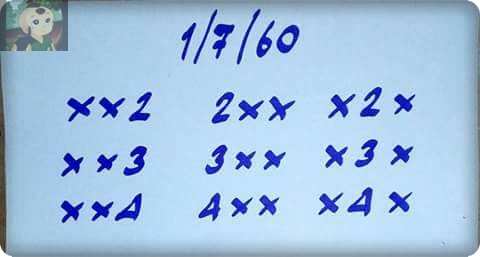 1/7/60
xx2 2xx x2x
xx3 3xx x3x
xx4 4xx x4x